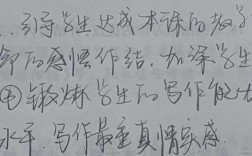 引导学生达成本课的教学
的感悟作结,加深学生
④锻炼学生的写作能力
水平,写作最重真情实感